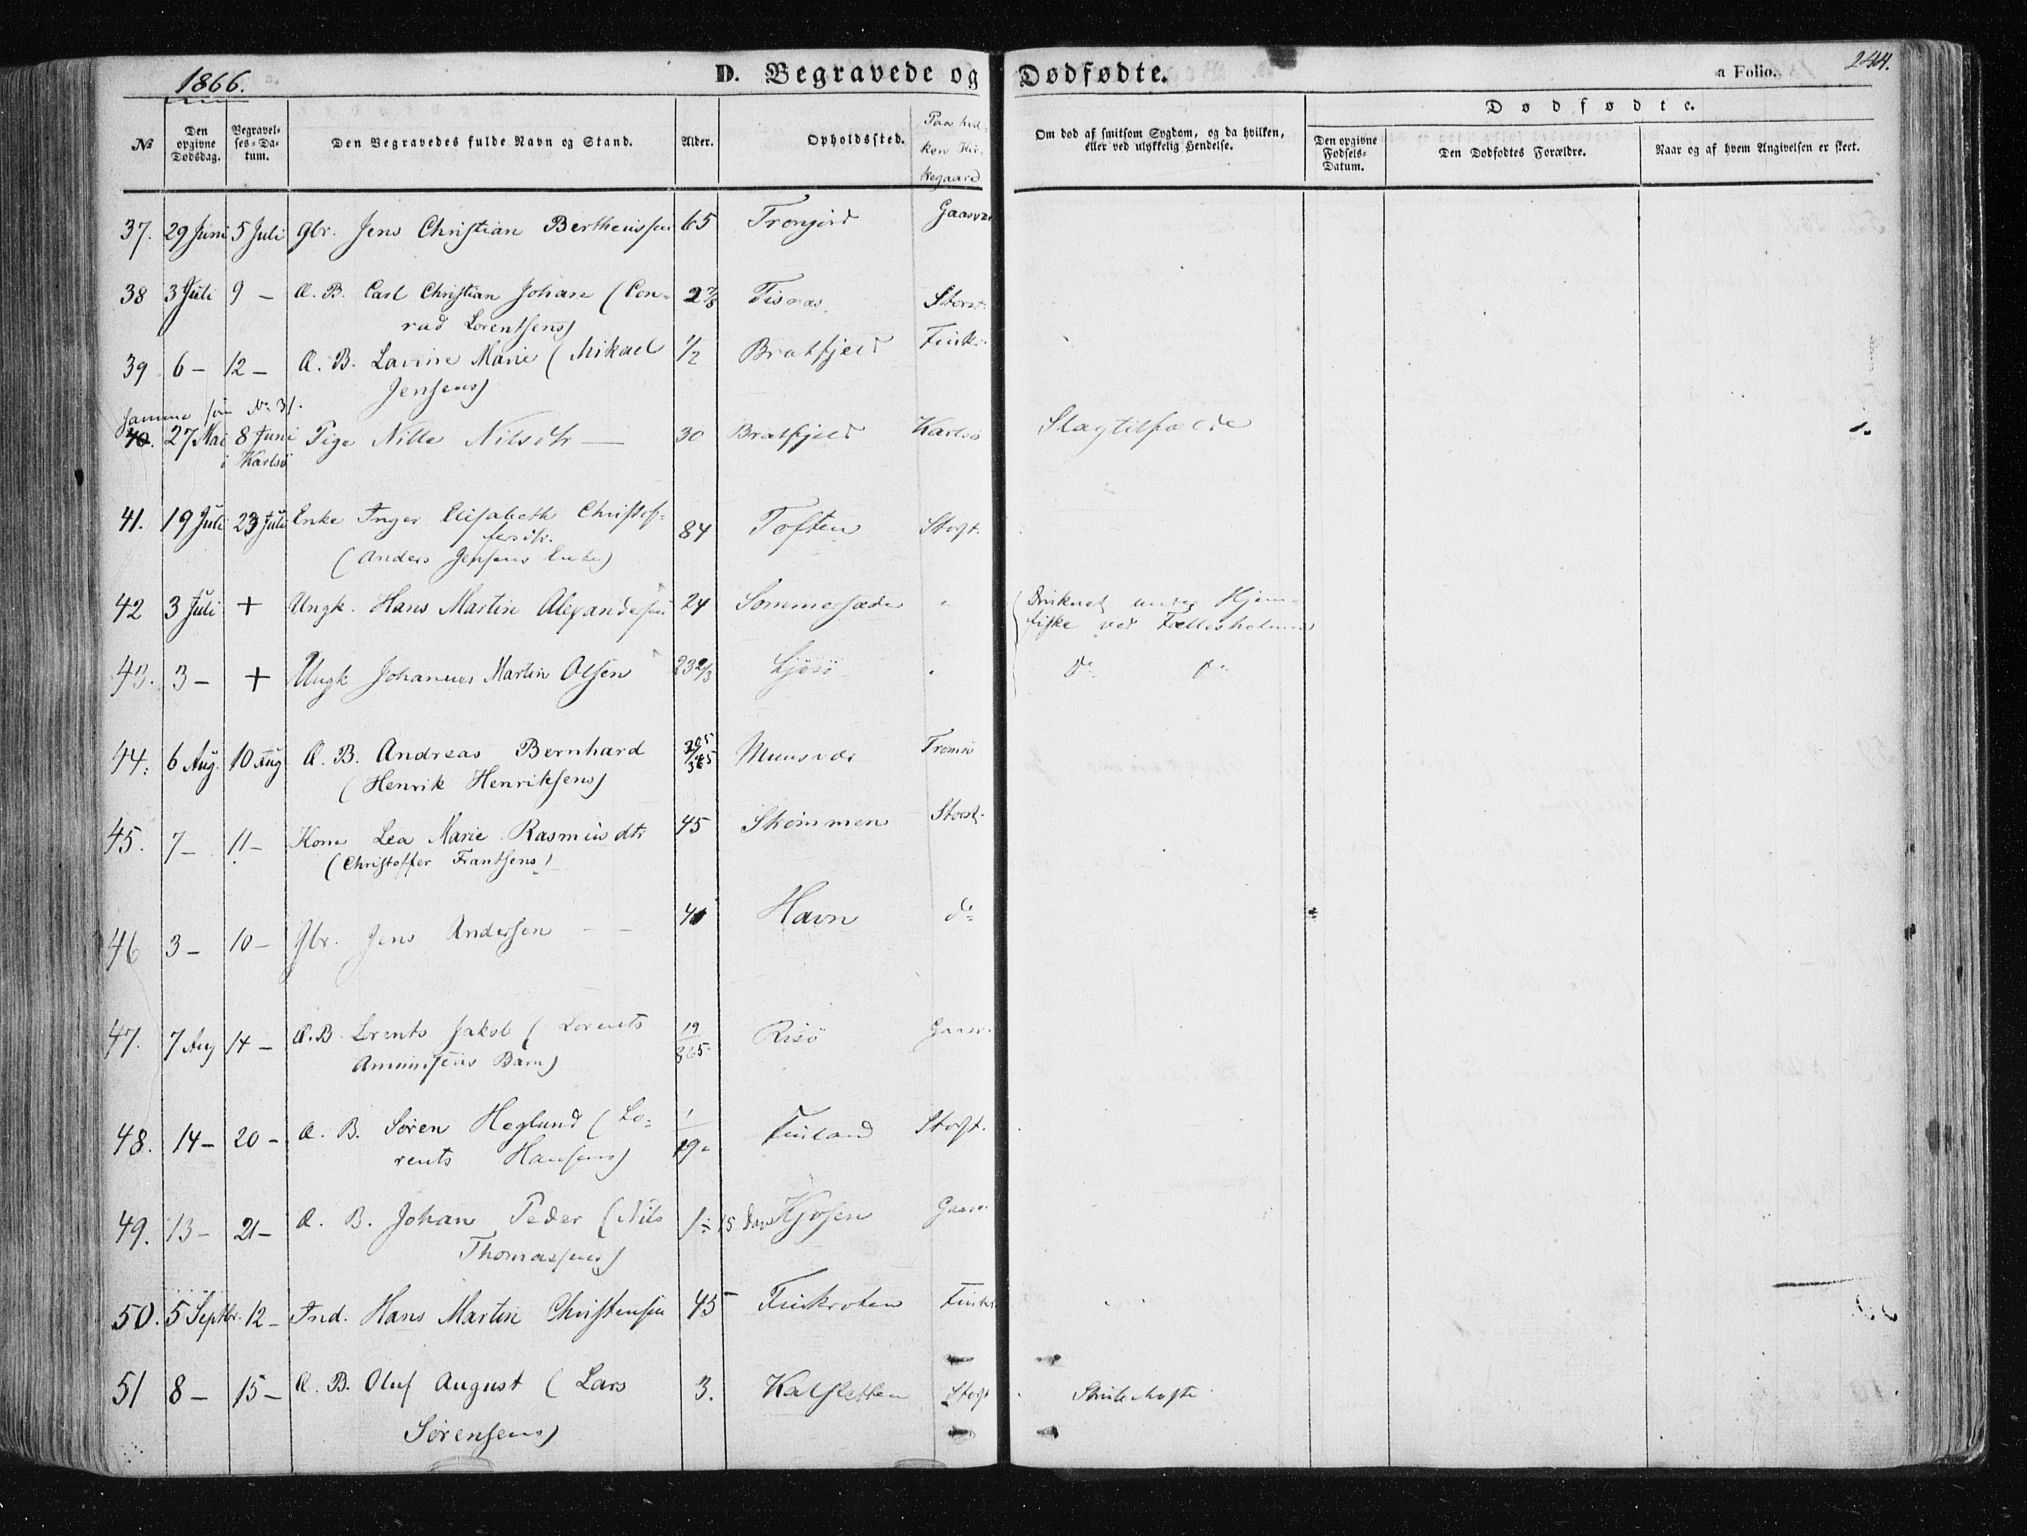 1866.
D. Begravede og Dødfødte.
a Folio. 244.
№
Den opgivne Dødsdag.
Begravelses-Datum.
Den Begravedes fulde Navn og Stand.
Alder.
Opholdssted.
Paa hvilken Kirkegaard
Om død af smitsom Sygdom, og da hvilken, eller ved ulykkelig Hendelse.
Dødfødte.
Den opgivne Fødsels-Datum.
Den Dødfødtes Forældre.
Naar og af hvem Angivelsen er skeet.
37. 29 Juni 5 Juli Gbr. Jens Christian Bertheussen 65
38 3 Juli 9 – Æ. B. Carl Christian Johan (Con- 2 7/8 Tisnæs Storst.
rad Lorentsens)
39 6 – 12 – Æ. B. Lavine Marie (Mikael 1/2 Bratfjeld Finkr.
Jensens)
Samme som No 31.
40. 27 Mai 8 Juni Pige Nille Nilsdtr — 30 Bratfjeld Karlsö Slagtilfælde 1.
i Karlsö
41. 19 Juli 23 Juli Enke Inger Elisabeth Christof-
fersdtr. 84 Toften Storst.
(Anders Jensens Enke)
42 3 Juli + Ungk. Hans Martin Alexandersen 24 Sommersæder " Druknet under Hjem-
fiske ved Fællesholmen
43. 3 – + Ungk Johannes Martin Olsen 23 2/3 Ljösö " do do
44. 6 Aug. 10 Aug Æ. B. Andreas Bernhard Muusvær Tromsö
(Henrik Henriksens)
45. 7 – 11 – Kone Lea Marie Rasmusdtr 45 Skommen Storst.
(Christoffer Frantsens)
46 3 – 10 – Gbr. Jens Andersen – – Havn do
47. 7 Aug 14 – Æ. B. Lrents Jakob (Lorents 19/365 Risö Gaasv.
Amunsens Barn)
48. 14 – 20 – Æ. B. Sören Heglund (Lo- Finland Storst.
rents Hansens)
49. 13 – 21 – Æ. B. Johan Peder (Nils 15 Dage Kjosen Gaasv.
Thomassens)
50. 5 Septbr. 12 – Ind. Hans Martin Christensen 45 Finkroken Finkr.
51 8 – 15 – Æ. B. Oluf August (Lars 3. Kalsletten Storst Strubehoste
Sörensens)